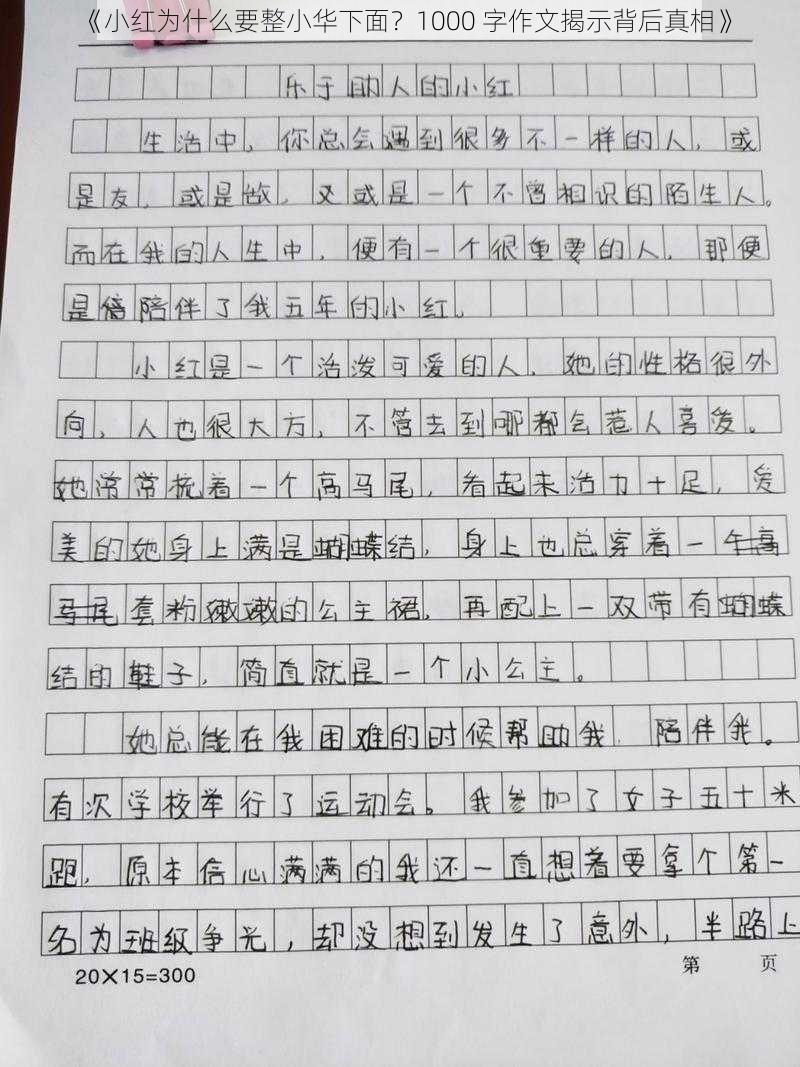 《小红为什么要整小华下面？1000 字作文揭示背后真相》
乐于助人的小红
生活中，你总会遇到很多不一样的人，或
是友，或是敌，又或是一个不曾相识的陌生人。
而在我的人生中，便有一个很重要的人，那便
是陪伴了我五年的小红。
小红是一个活泼可爱的人，她的性格很外
向，人也很大方，不管去到哪都会惹人喜爱。
她常常梳着一个高马尾，看起来活力十足，爱
美的她身上满是蝴蝶结，身上也总穿着一
套粉嫩嫩的公主裙，再配上一双带有蝴蝶
结的鞋子，简直就是一个小公主。
她总能在我困难的时候帮助我，陪伴我。
有次学校举行了运动会。我参加了女子五十米
跑，原本信心满满的我还一直想着要拿个第一
名为班级争光，却没想到发生了意外，半路上
20×15=300
第 页